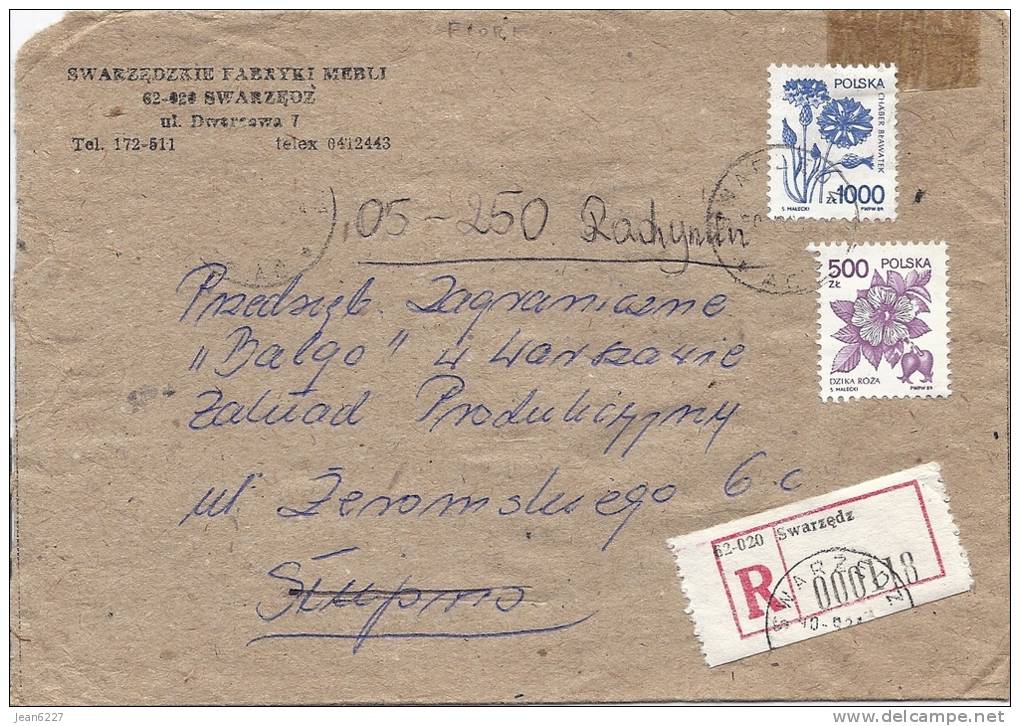 FIORE
SWARZĘDZKIE FABRYKI MEBLI
62-020 SWARZĘDZ
ul. Dworcowa 7
Tel. 172-511 telex 0412443
POLSKA
CHABER BŁAWATEK
ZŁ 1000
S. MAŁECKI PWPW 89
05-250 Radzymin
500 ZŁ POLSKA
DZIKA RÓŻA
S. MAŁECKI PWPW 89
Przedsięb. Zagraniczne
„Balgo" w Warszawie
Zakład Produkcyjny
ul. Żeromskiego 6 c
Słupno
62-020 Swarzędz
R 000118
SWARZĘDZ
jean6227
www.delcampe.net